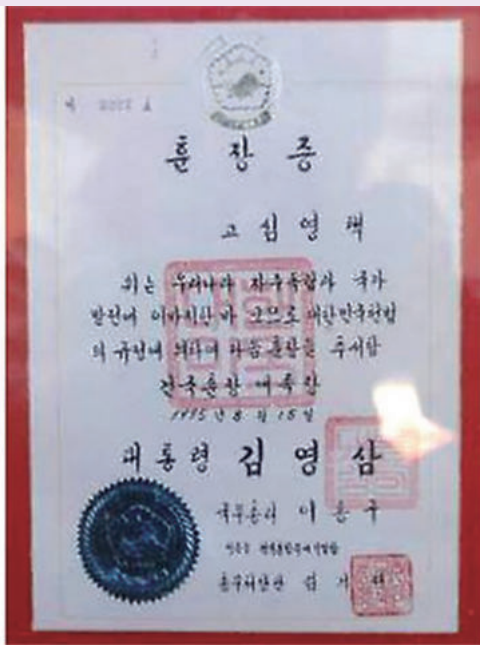 훈장증
고 심영택
위는 우리나라 자주독립과 국가
발전에 이바지한 바 크므로 대한민국헌법
의 규정에 의하여 다음 훈장을 추서함
건국훈장 애족장
1995년 8월 15일
대통령 김영삼
국무총리 이홍구
총무처장관 김기재